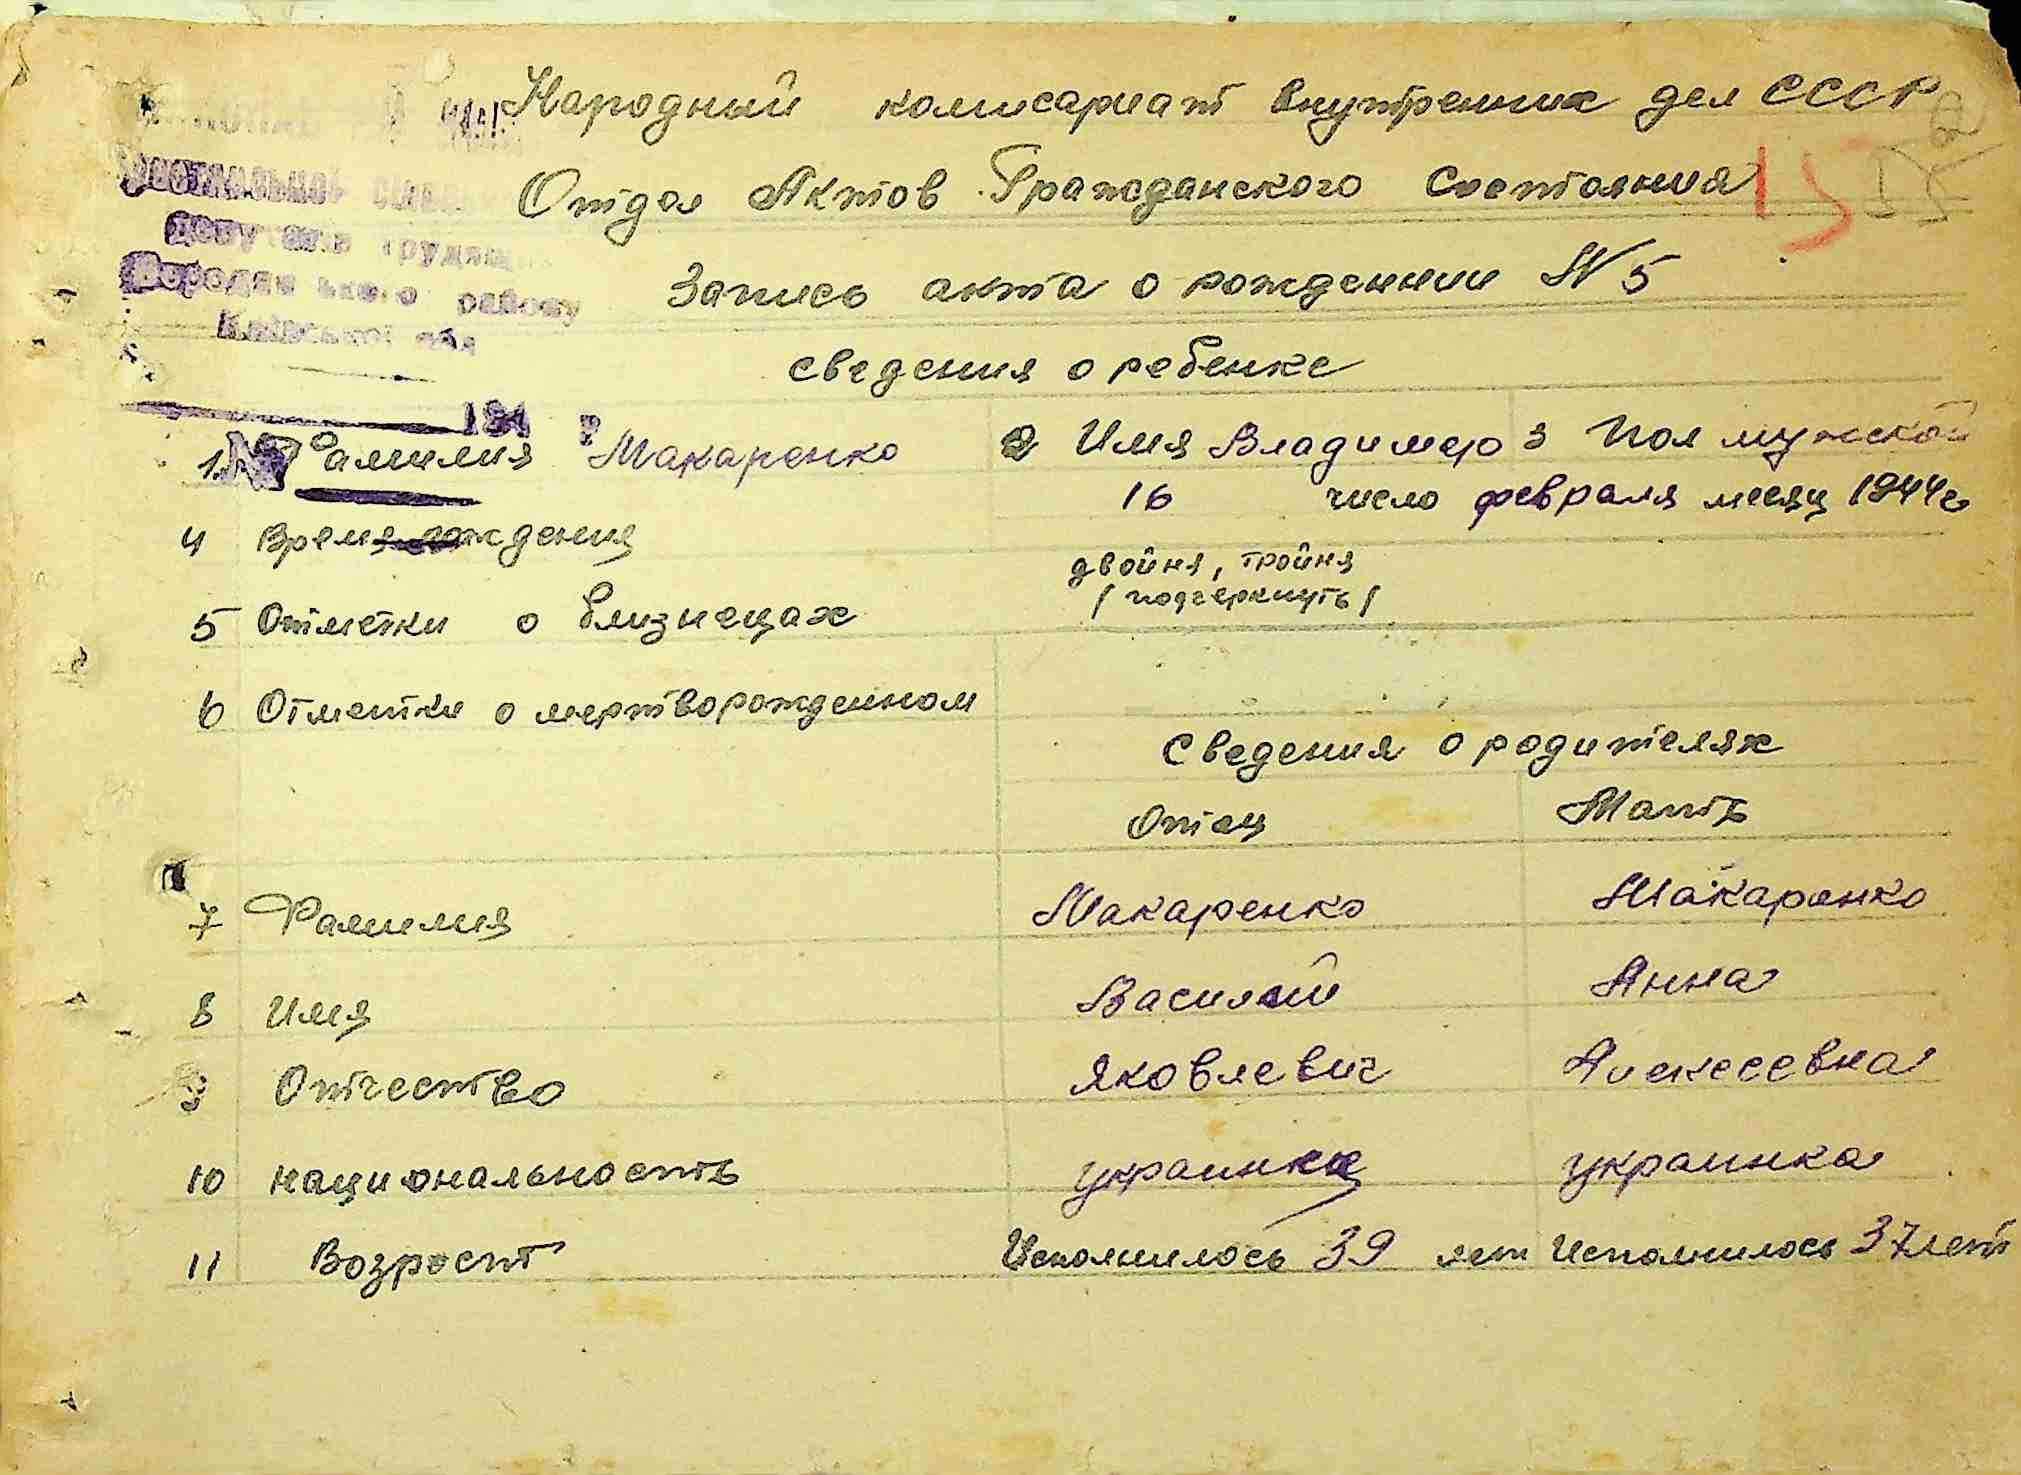 Народный комисариат внутренних дел СССР
Отдел Актов Гражданского Состояния 15
Запись акта о рождении N 5
сведения о ребенке
району
194 р
1 Фамилия Макаренко 2 Имя Владимер 3 Пол мужской
16 число февраля месяц 1944 г
4 Время рождения
двойня, тройня
/ подчеркнуть /
5 Отметки о близнецах
6 Отметки о мертворожденном
Сведения о родителях
Отец Мать
7 Фамилия Макаренко Макаренко
8 Имя Василий Анна
9 Отчество Яковлевич Алексеевна
10 национальность украинец украинка
11 Возрост Исполнилось 39 лет Исполнилось 37 лет